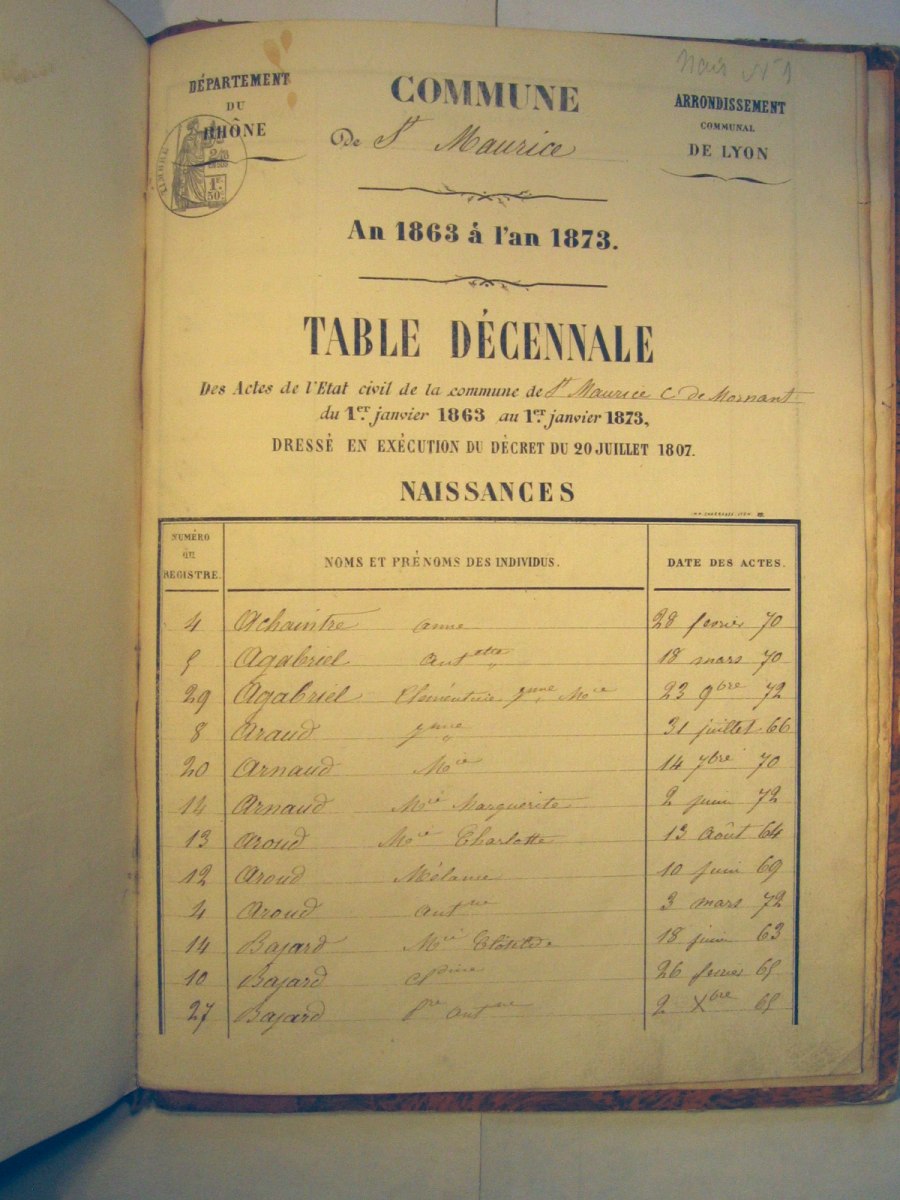 Nais N° 1
DÉPARTEMENT
DU
RHÔNE
COMMUNE
De St Maurice
ARRONDISSEMENT
COMMUNAL
DE LYON
TIMBRE
An 1863 à l'an 1873.
TABLE DÉCENNALE
Des Actes de l'Etat civil de la commune de St Maurice C de Mornant
du 1er. janvier 1863 au 1er. janvier 1873,
DRESSÉ EN EXÉCUTION DU DÉCRET DU 20 JUILLET 1807.
NAISSANCES
NUMÉRO du REGISTRE. NOMS ET PRÉNOMS DES INDIVIDUS. DATE DES ACTES.
4 Achaintre anne 28 fevrier 70
5 Agabriel Antette 18 mars 70
29 Agabriel Clémentine Jnne Mie 23 9bre 72
8 Araud Jnne 31 juillet 66
20 Arnaud Mie 14 7bre 70
14 Arnaud Mie Marguerite 2 juin 72
13 Aroud Mie Charlotte 13 Août 64
12 Aroud Mélanie 10 juin 69
4 Aroud Antne 3 mars 72
14 Bajard Mie Clotilde 18 juin 63
10 Bajard 26 fevrier 65
27 Bajard Antne 2 Xbre 65